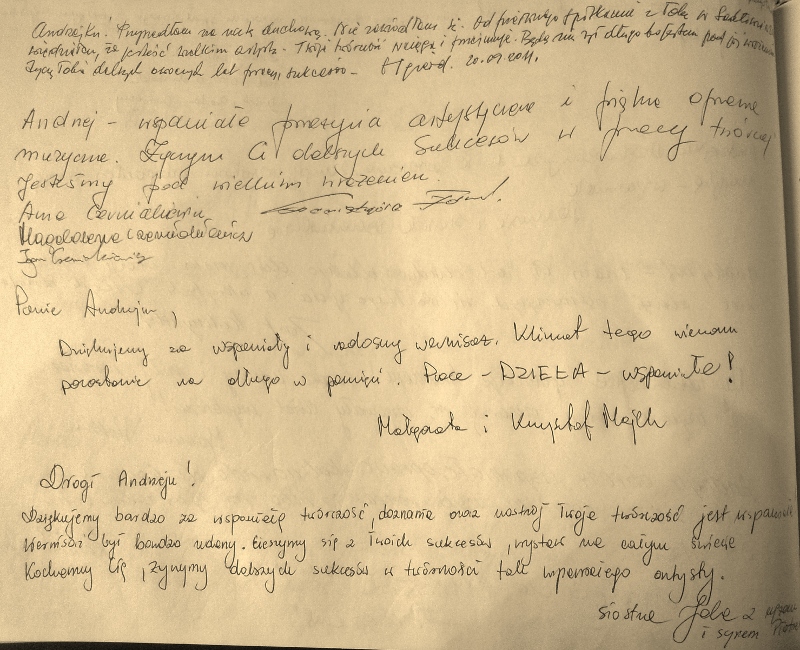 Andrzejku! Przyszedłem na rady duchową. Nie zawiodłem się. Od pierwszego spotkania z Tobą w
wiedziałem, że jesteś wielkim artystą. Twoje i Będę żył długo pod
Życzę Tobie dalszych owocnych lat pracy, sukcesów - 20.09.2011.
Andrzej - wspaniałe przeżycia artystyczne i piękna oprawa
muzyczna. Życzymy Ci dalszych sukcesów w pracy twórczej
Jesteśmy pod wielkim wrażeniem.
Anna
Magdalena Czerniakiewicz
Igor Czerniakiewicz
Panie Andrzeju,
Dziękujemy za wspaniały i radosny wernisaż. Klimat tego wieczoru
pozostanie na długo w pamięci. Prace - DZIEŁA - wspaniałe!
Małgorzata i Krzysztof
Drogi Andrzeju!
Dziękujemy bardzo za wspaniałą twórczość, doznania oraz nastrój Twoja twórczość jest wspaniała
Wernisaż był bardzo udany. Cieszymy się z Twoich sukcesów, wystaw na całym świecie
Kochamy Cię, życzymy dalszych sukcesów w twórczości tak wspaniałego artysty.
siostra Jola z mężem
i synem